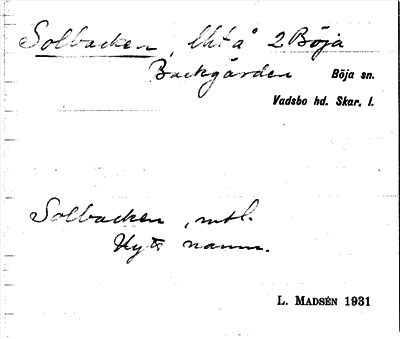 Solbacken, Utå 2 Böja
Backgården Böja sn.
Vadsbo hd. Skar. l.
Solbacken, mtl.
Nytt namn.
L. MADSÉN 1931